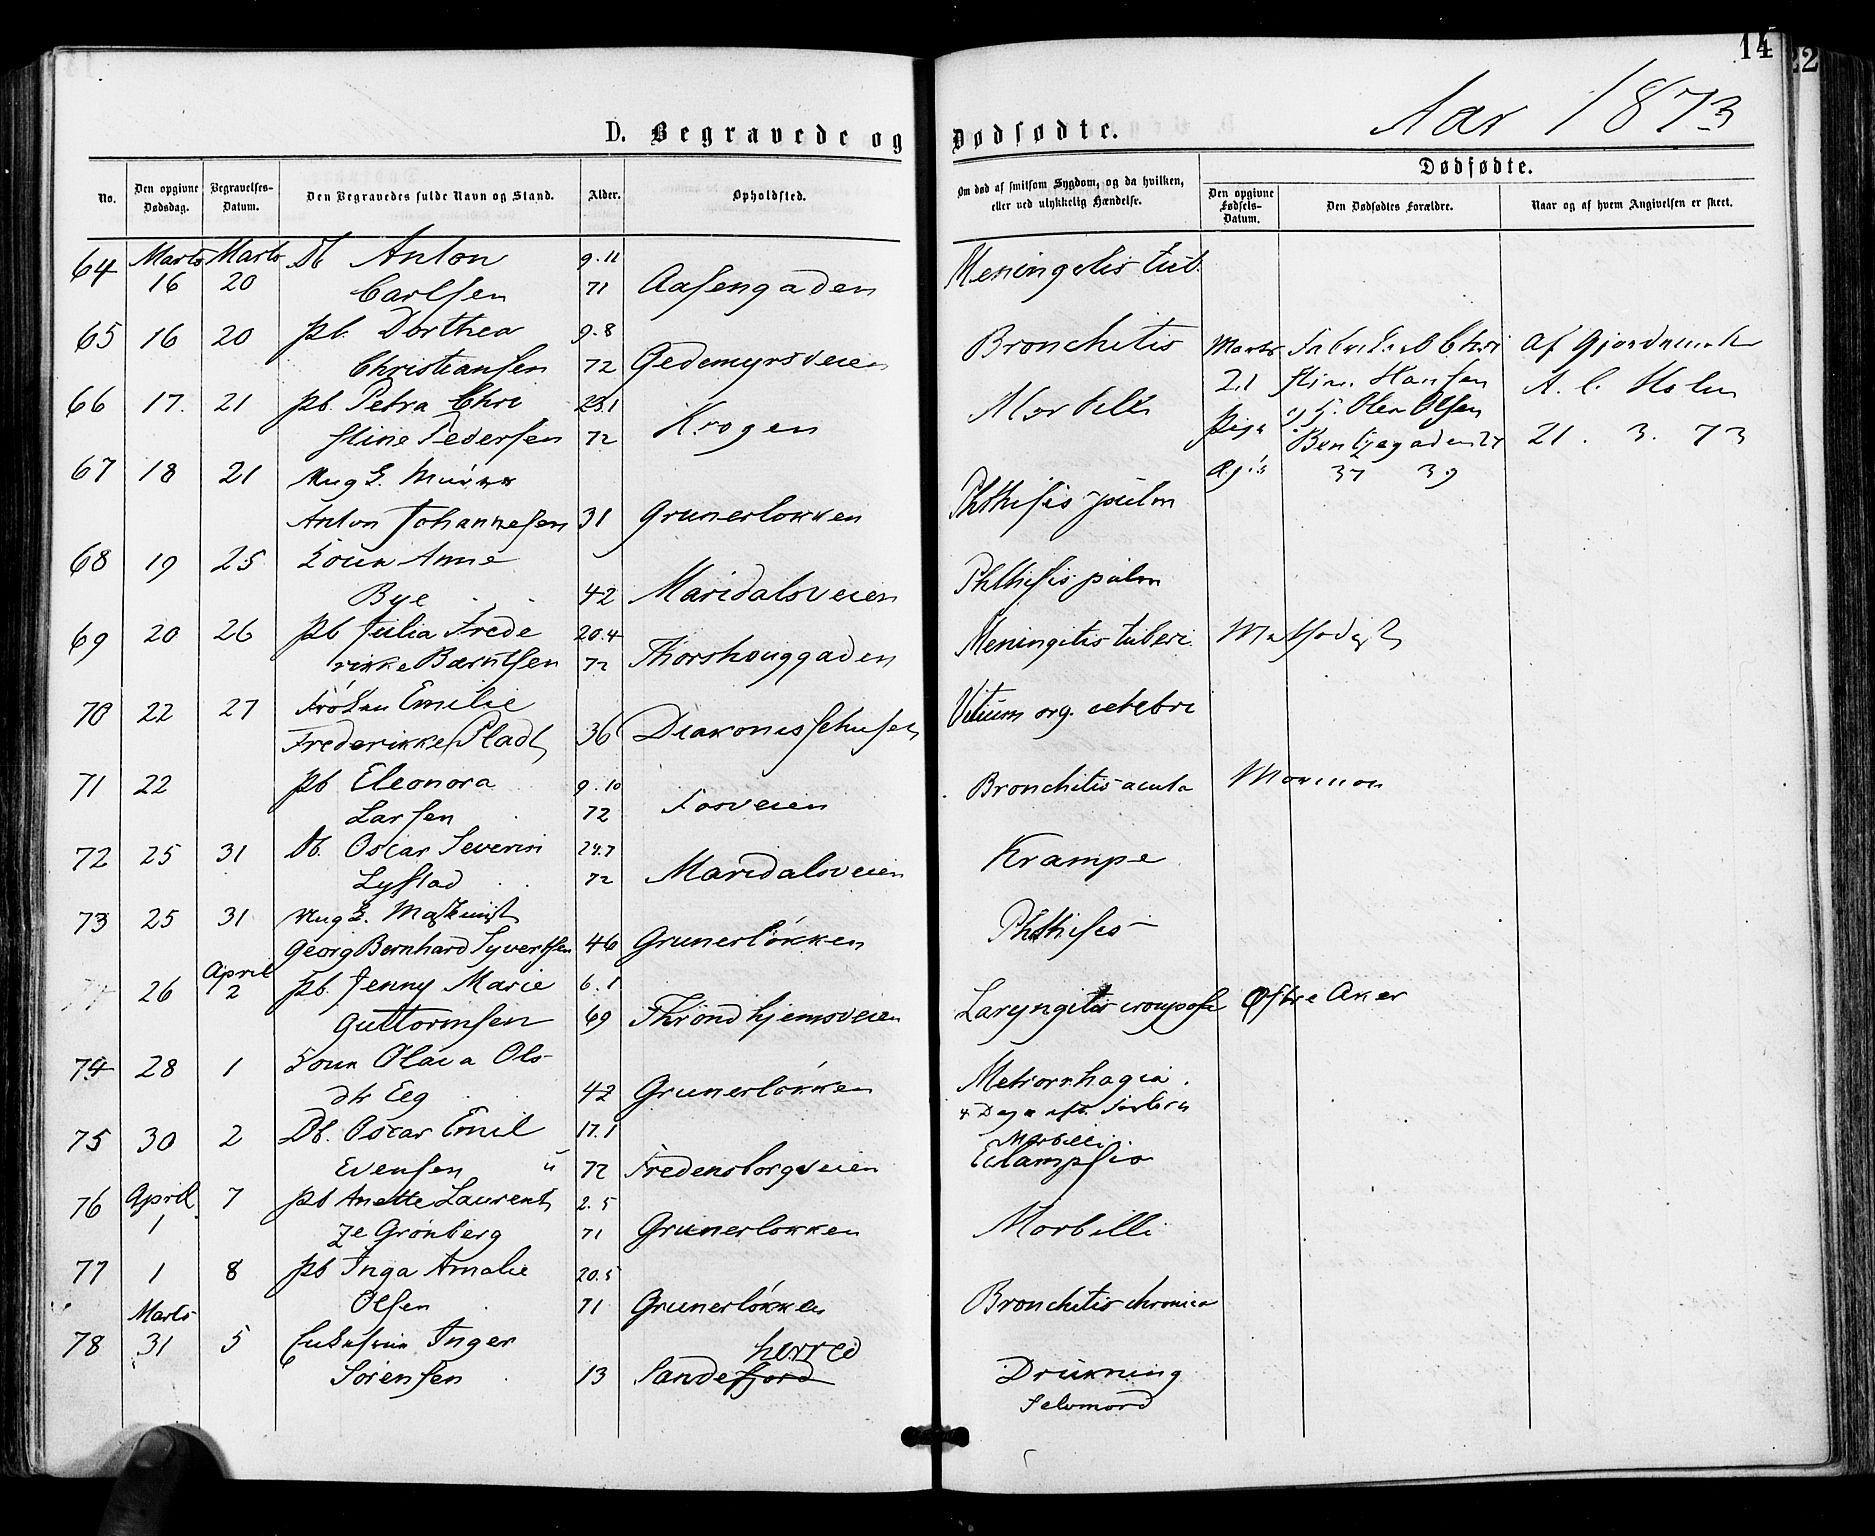 14
22
Aar 1873
D. Begravede og Dødfødte.
No.
Den opgivne Dødsdag.
Begravelses-Datum.
Den Begravedes fulde Navn og Stand.
Alder.
Opholdsted.
Om død af smitsom Sygdom, og da hvilken, eller ved ulykkelig Hændelse.
Dødfødte.
Den opgivne Fødsels-Datum.
Den Dødfødtes Forældre.
Naar og af hvem Angivelsen er skeet.
64 Marts 16 Marts 20 Db Anton 9.11
Carlsen 71 Aasengaden Meningitis tub.
65 16 20 Pb. Dorthea 9.8
Christiansen 72 Gedemyrsveien Bronchitis
Marts 21
Hansen
Olsen
Pige
37 39
Af Gjordemoder
A. C. Holm
21. 3. 73
66 17. 21 Pb. Petra Chri 23.1
stine Pedersen 72 Krogen Morbilli
67 18 21 Ung K. Murer
Anton Johannesen 31 Grunerløkken Phthisis pulm
68 19 25 Kone Anne
Bye 42 Maridalsveien Phthisis pulm
69 20 26 Pb Julia Frede 20.4
rikke Bærntsen 72 Thorshauggaden Meningitis tuberc. Methodist
70 22 27 Frøken Emilie
Frederikke Pladt 36 Diakonissehuset Vitium org. cerebri
71 22 Pb Eleonora 9.10
Larsen 72 Fosveien Bronchitis acuta Mormon
72 25 31 Db. Oscar Severin 24.7
Lystad 72 Maridalsveien Krampe
73 25 31 Ung K. Maskinist
Georg Bernhard Syvertsen 46 Grunerløkken Phthisis
26 April 2 Pb. Jenny Marie 6.1
Guttormsen 69 Throndhjemsveien Laryngitis crouposa Østre Aker
74 28 1 Kone Olava Ols
dtr Eeg 42 Grunerløkken Metrorrhagia.
4 Dage eft.
75 30 2 Db. Oscar Emil 17.1
Evensen u 72 Fredensborgveien Morbilli.
Eclampsia
76 April 1 7 Pb Anette Laurent 2.5
ze Grønberg 71 Grunerløkken Morbilli
77 1 8 Pb Inga Amalie 20.5
Olsen 71 Grunerløkken Bronchitis chronica
78 Marts 31 5 Inger
Sørensen 13 Sandefjord herred Drukning
Selvmord